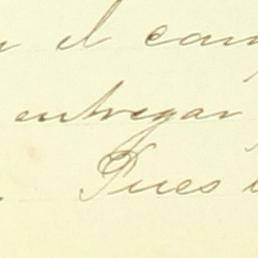 el cam
entregar
Pues